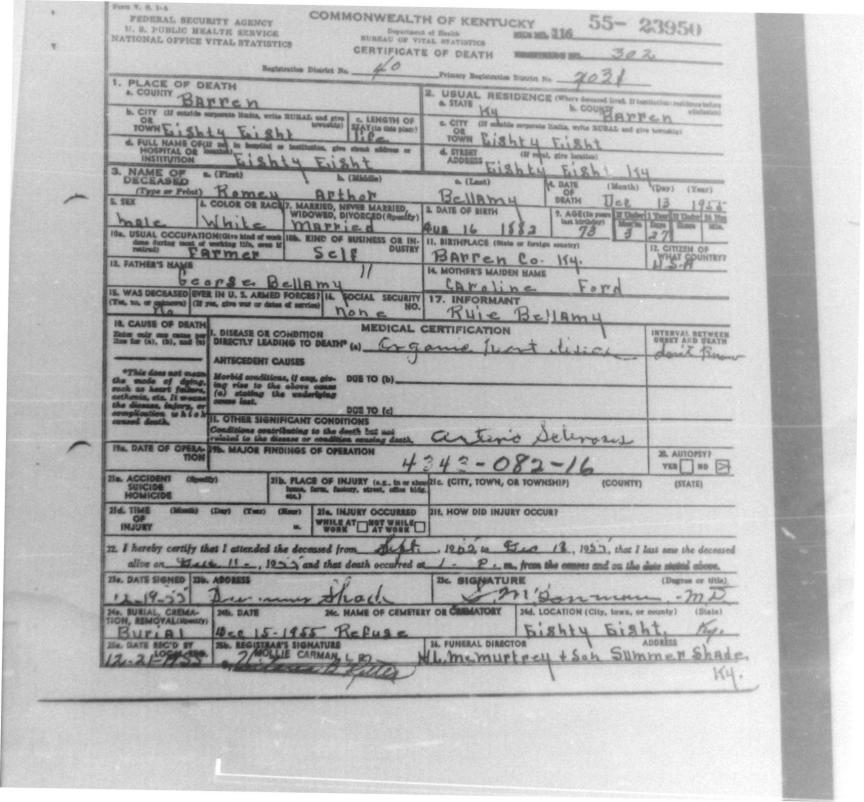 Form V. S. 1-A
FEDERAL SECURITY AGENCY
U. S. PUBLIC HEALTH SERVICE
NATIONAL OFFICE VITAL STATISTICS
COMMONWEALTH OF KENTUCKY
Department of Health
BUREAU OF VITAL STATISTICS
CERTIFICATE OF DEATH
116 55- 23950
302
Registration District No. 40 Primary Registration District No. 2031
1. PLACE OF DEATH
a. COUNTY Barren
b. CITY (If outside corporate limits, write RURAL and give township)
OR TOWN Eighty Eight
c. LENGTH OF STAY (in this place) life
d. FULL NAME OF (If not in hospital or institution, give street address or location)
HOSPITAL OR INSTITUTION Eighty Eight
2. USUAL RESIDENCE (Where deceased lived. If institution: residence before admission)
a. STATE Ky b. COUNTY Barren
c. CITY (If outside corporate limits, write RURAL and give township)
OR TOWN Eighty Eight
d. STREET ADDRESS (If rural, give location) Eighty Eight Ky
3. NAME OF DECEASED (Type or Print)
a. (First) b. (Middle) c. (Last)
Romey Arthor Bellamy
4. DATE OF DEATH (Month) (Day) (Year)
Dec 13 1955
5. SEX male
6. COLOR OR RACE White
7. MARRIED, NEVER MARRIED, WIDOWED, DIVORCED (Specify) Married
8. DATE OF BIRTH Aug 16 1882
9. AGE (In years last birthday) 73
If Under 1 Year Months 3 Days 27
If Under 24 Hrs Hours Min.
10a. USUAL OCCUPATION (Give kind of work done during most of working life, even if retired) Farmer
10b. KIND OF BUSINESS OR INDUSTRY Self
11. BIRTHPLACE (State or foreign country) Barren Co. Ky.
12. CITIZEN OF WHAT COUNTRY? U.S.A
13. FATHER'S NAME George Bellamy
14. MOTHER'S MAIDEN NAME Caroline Ford
15. WAS DECEASED EVER IN U. S. ARMED FORCES?
(Yes, no, or unknown) (If yes, give war or dates of service) No
16. SOCIAL SECURITY NO. none
17. INFORMANT Ruie Bellamy
18. CAUSE OF DEATH
Enter only one cause per line for (a), (b), and (c)
MEDICAL CERTIFICATION
INTERVAL BETWEEN ONSET AND DEATH
I. DISEASE OR CONDITION
DIRECTLY LEADING TO DEATH* (a) Organic heart disease
dont know
ANTECEDENT CAUSES
*This does not mean the mode of dying, such as heart failure, asthenia, etc. It means the disease, injury, or complication which caused death.
Morbid conditions, if any, giving rise to the above cause (a) stating the underlying cause last.
DUE TO (b)
DUE TO (c)
II. OTHER SIGNIFICANT CONDITIONS
Conditions contributing to the death but not related to the disease or condition causing death.
Arterio Sclerosis
19a. DATE OF OPERATION
19b. MAJOR FINDINGS OF OPERATION
4343-082-16
20. AUTOPSY?
YES NO
21a. ACCIDENT SUICIDE HOMICIDE (Specify)
21b. PLACE OF INJURY (e.g., in or about home, farm, factory, street, office bldg. etc.)
21c. (CITY, TOWN, OR TOWNSHIP) (COUNTY) (STATE)
21d. TIME OF INJURY (Month) (Day) (Year) (Hour) m.
21e. INJURY OCCURRED
WHILE AT WORK NOT WHILE AT WORK
21f. HOW DID INJURY OCCUR?
22. I hereby certify that I attended the deceased from Sept, 1952 to Dec 13, 1955, that I last saw the deceased
alive on Dec 11-, 1955 and that death occurred at 1- P.m., from the causes and on the date stated above.
23a. DATE SIGNED 12-19-55
23b. ADDRESS Summer Shade
23c. SIGNATURE (Degree or title)
MD
24a. BURIAL, CREMATION, REMOVAL (Specify) Burial
24b. DATE Dec 15-1955
24c. NAME OF CEMETERY OR CREMATORY Refuge
24d. LOCATION (City, town, or county) (State)
Eighty Eight, Ky.
25a. DATE REC'D BY LOCAL REG. 12-21-1955
25b. REGISTRAR'S SIGNATURE
MOLLIE CARMAN, L. R.
26. FUNERAL DIRECTOR ADDRESS
H.L. McMurtrey + Son Summer Shade,
Ky.